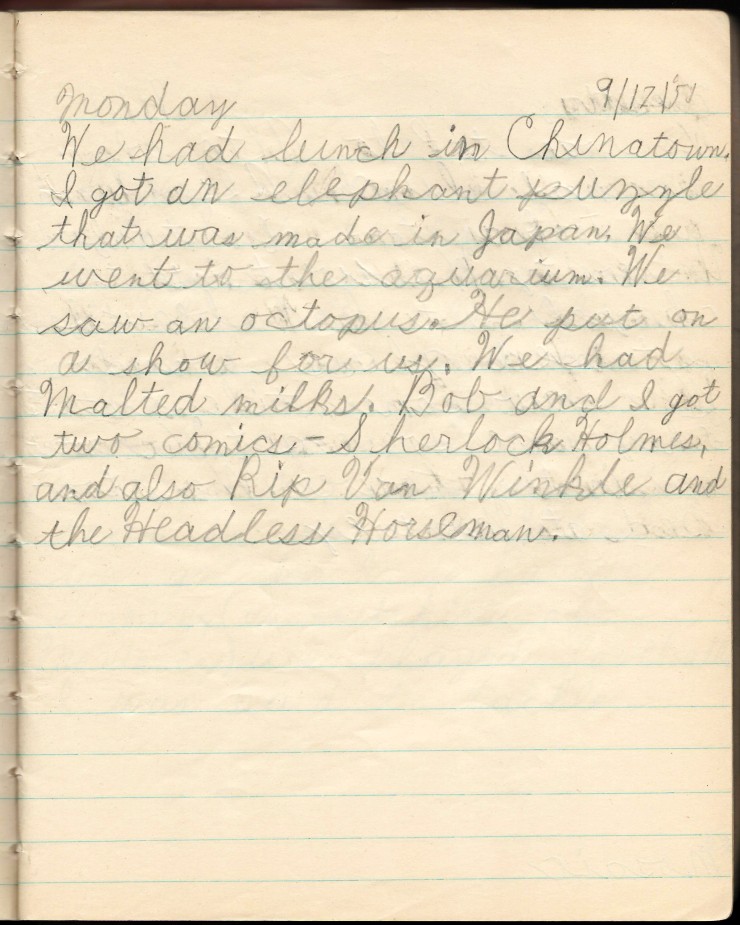 Monday 9/12/51
We had lunch in Chinatown.
I got an elephant puzzle
that was made in Japan. We
went to the aquarium. We
saw an octopus. He put on
a show for us. We had
Malted milks. Bob and I got
two comics - Sherlock Holmes,
and also Rip Van Winkle and
the Headless Horseman.